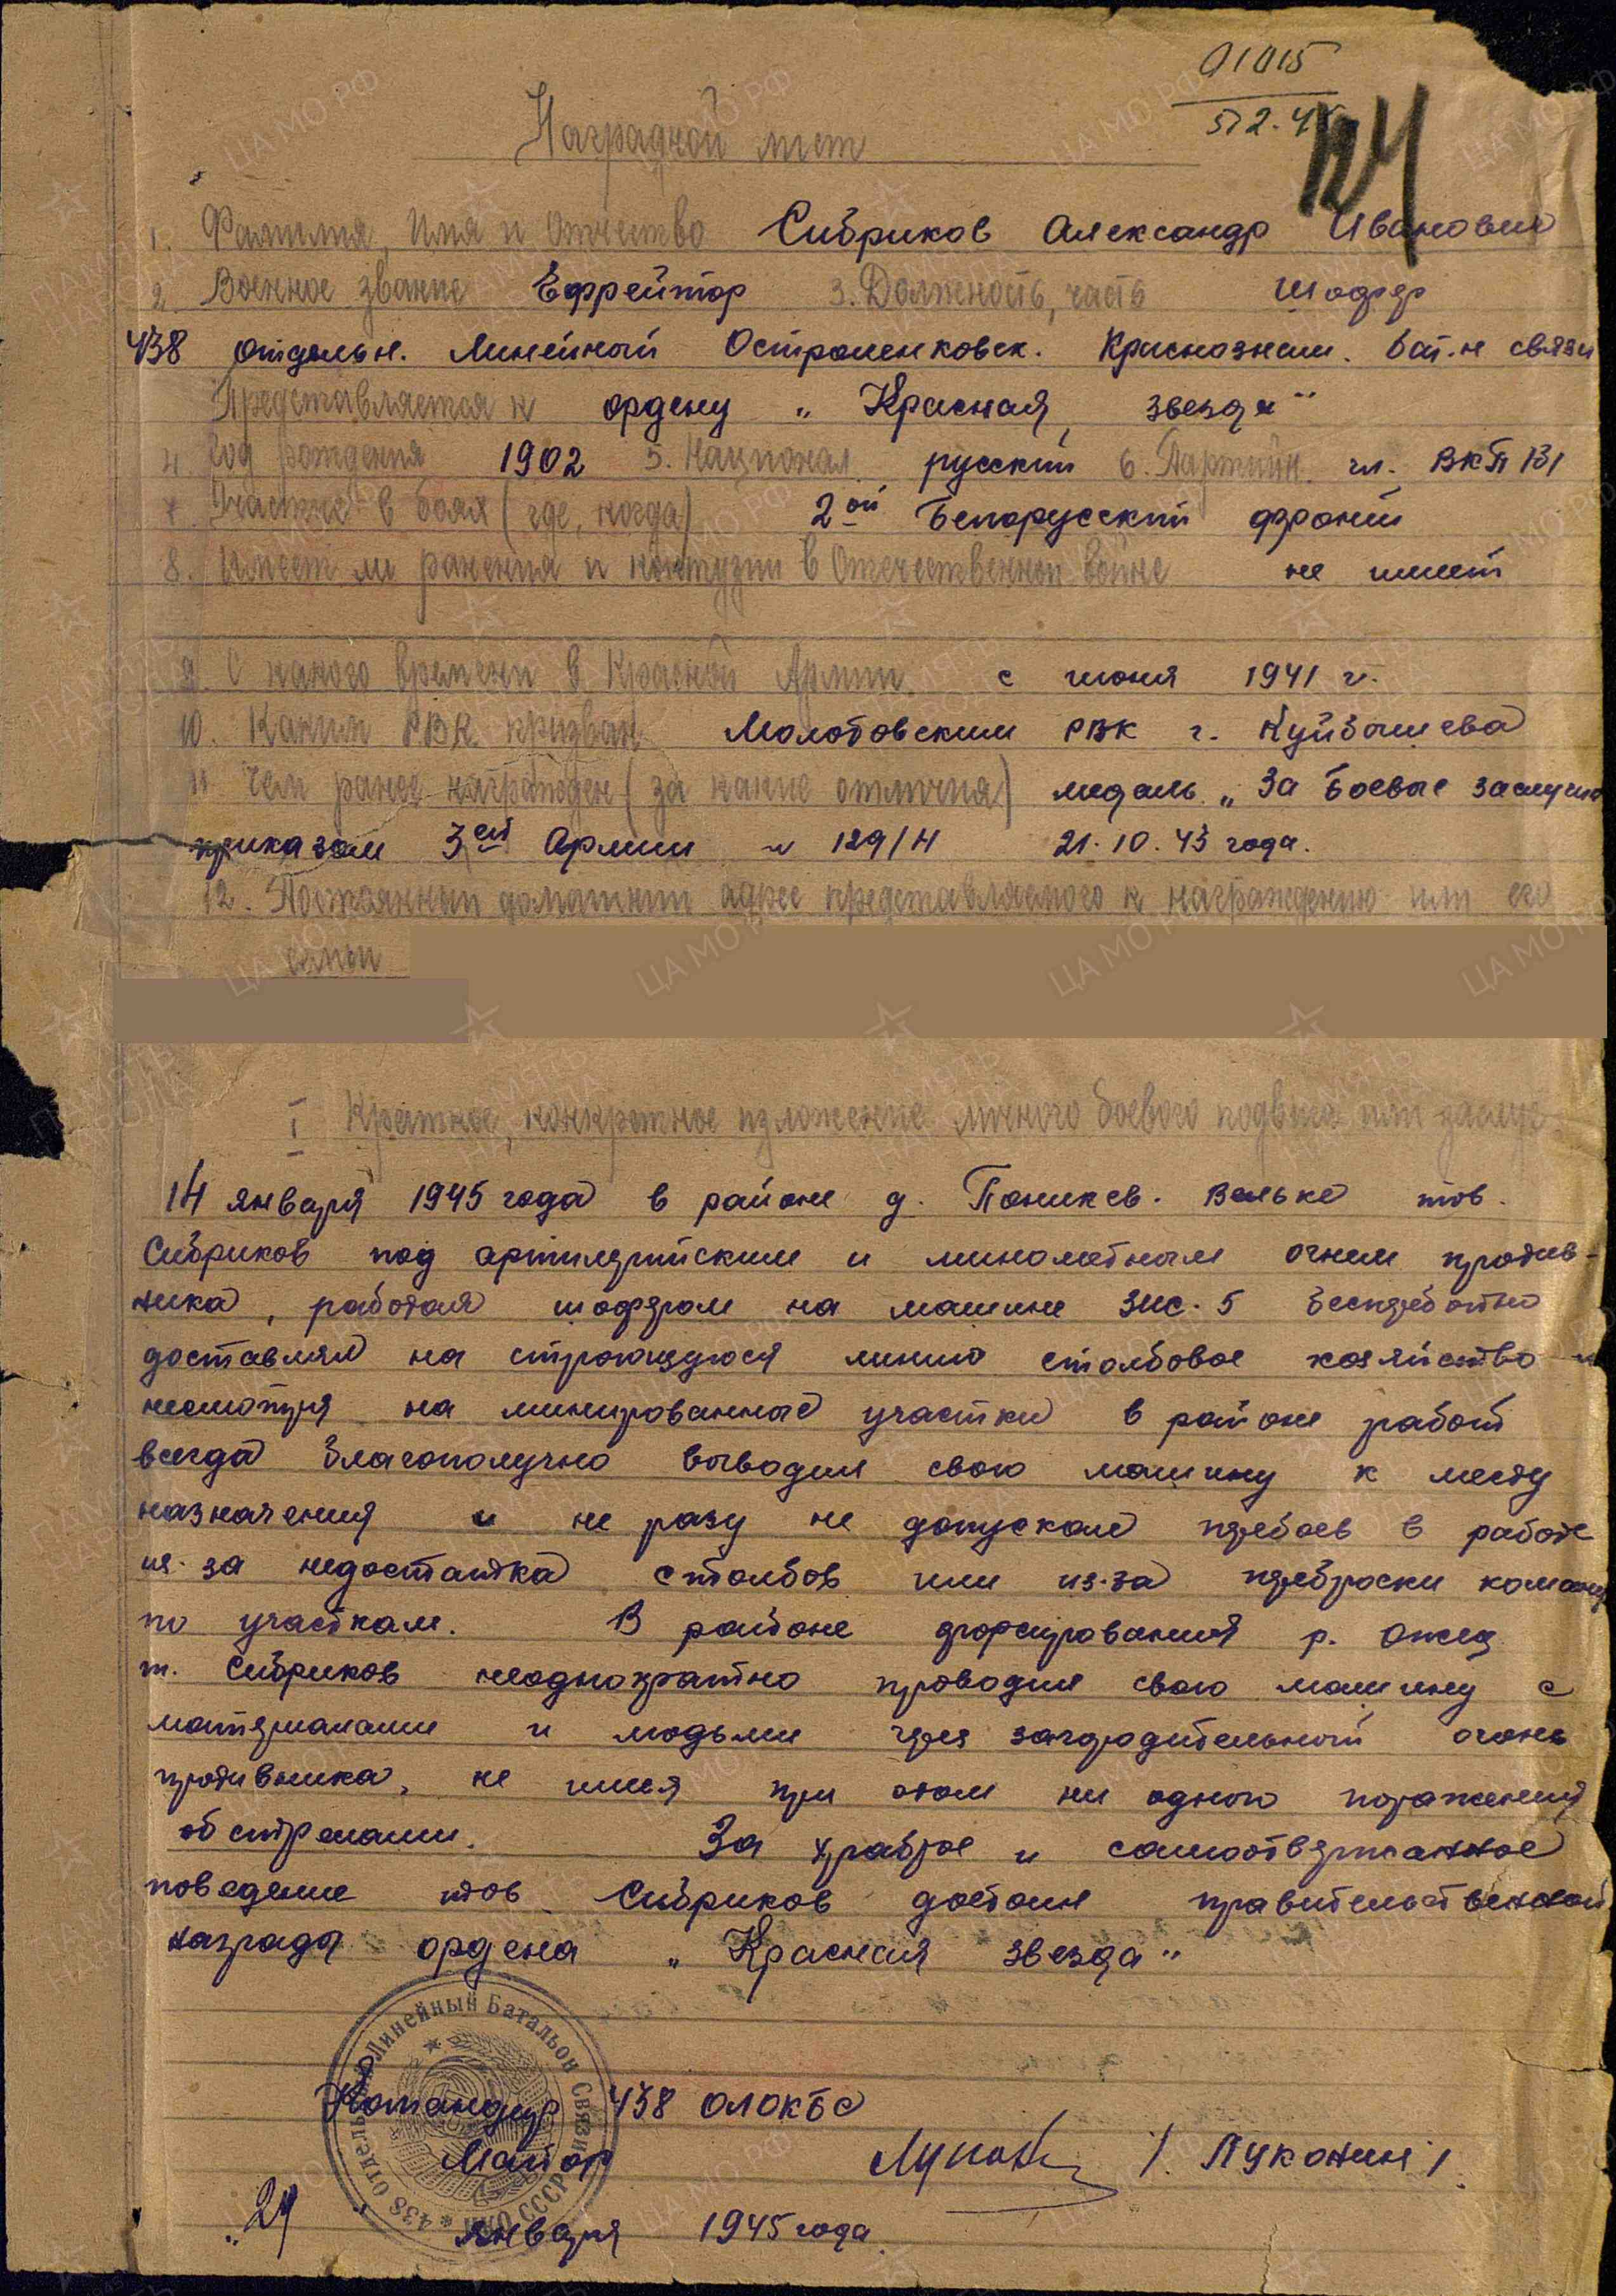 01015
5.2.45
124
Наградной лист
1. Фамилия, Имя и Отчество Сибриков Александр Иванович
2. Военное звание Ефрейтор 3. Должность, часть шофер
438 отдельн. Линейный Остроленковск. Краснознам. бат.н связи
Представляется к ордену „Красная звезда"
4. Год рождения 1902 5. Национал. русский 6. Партийн. чл. ВКП/б/
7. Участие в боях (где, когда) 2ой Белорусский фронт
8. Имеет ли ранения и контузии в Отечественной войне не имеет
9. С какого времени в Красной Армии с июня 1941 г.
10. Каким РВК призван Молотовским РВК г. Куйбышева
11. Чем ранее награжден (за какие отличия) медаль „За Боевые заслуги
приказом 3ей Армии № 129/н 21.10.43 года.
12. Постоянный домашний адрес представляемого к награждению или его
семьи
I Краткое, конкретное изложение личного боевого подвига или заслуг.
14 января 1945 года в районе д. Поникев. Вельке тов.
Сибриков под артилерийским и минометным огнем против-
ника, работая шофером на машине ЗИС-5 бесперебойно
доставлял на строющуюся линию столбовое хозяйство и
несмотря на минированные участки в районе работ
всегда благополучно выводил свою машину к месту
назначения и не разу не допускал перебоев в работе
из-за недостатка столбов или из-за переброски команд
по участкам. В районе форсирования р. Ожец
т. Сибриков неоднократно проводил свою машину с
материалами и людьми через заградительный огонь
противника, не имея при этом ни одного поражения
обстрелами. За храброе и самоотверженное
поведение тов. Сибриков достоин правительственной
награды ордена „Красная звезда"
Командир 438 ОЛОКБС
Майор /Луконин/
„29 января 1945 года
438 Отдельный Линейный Батальон Связи * НКО СССР *